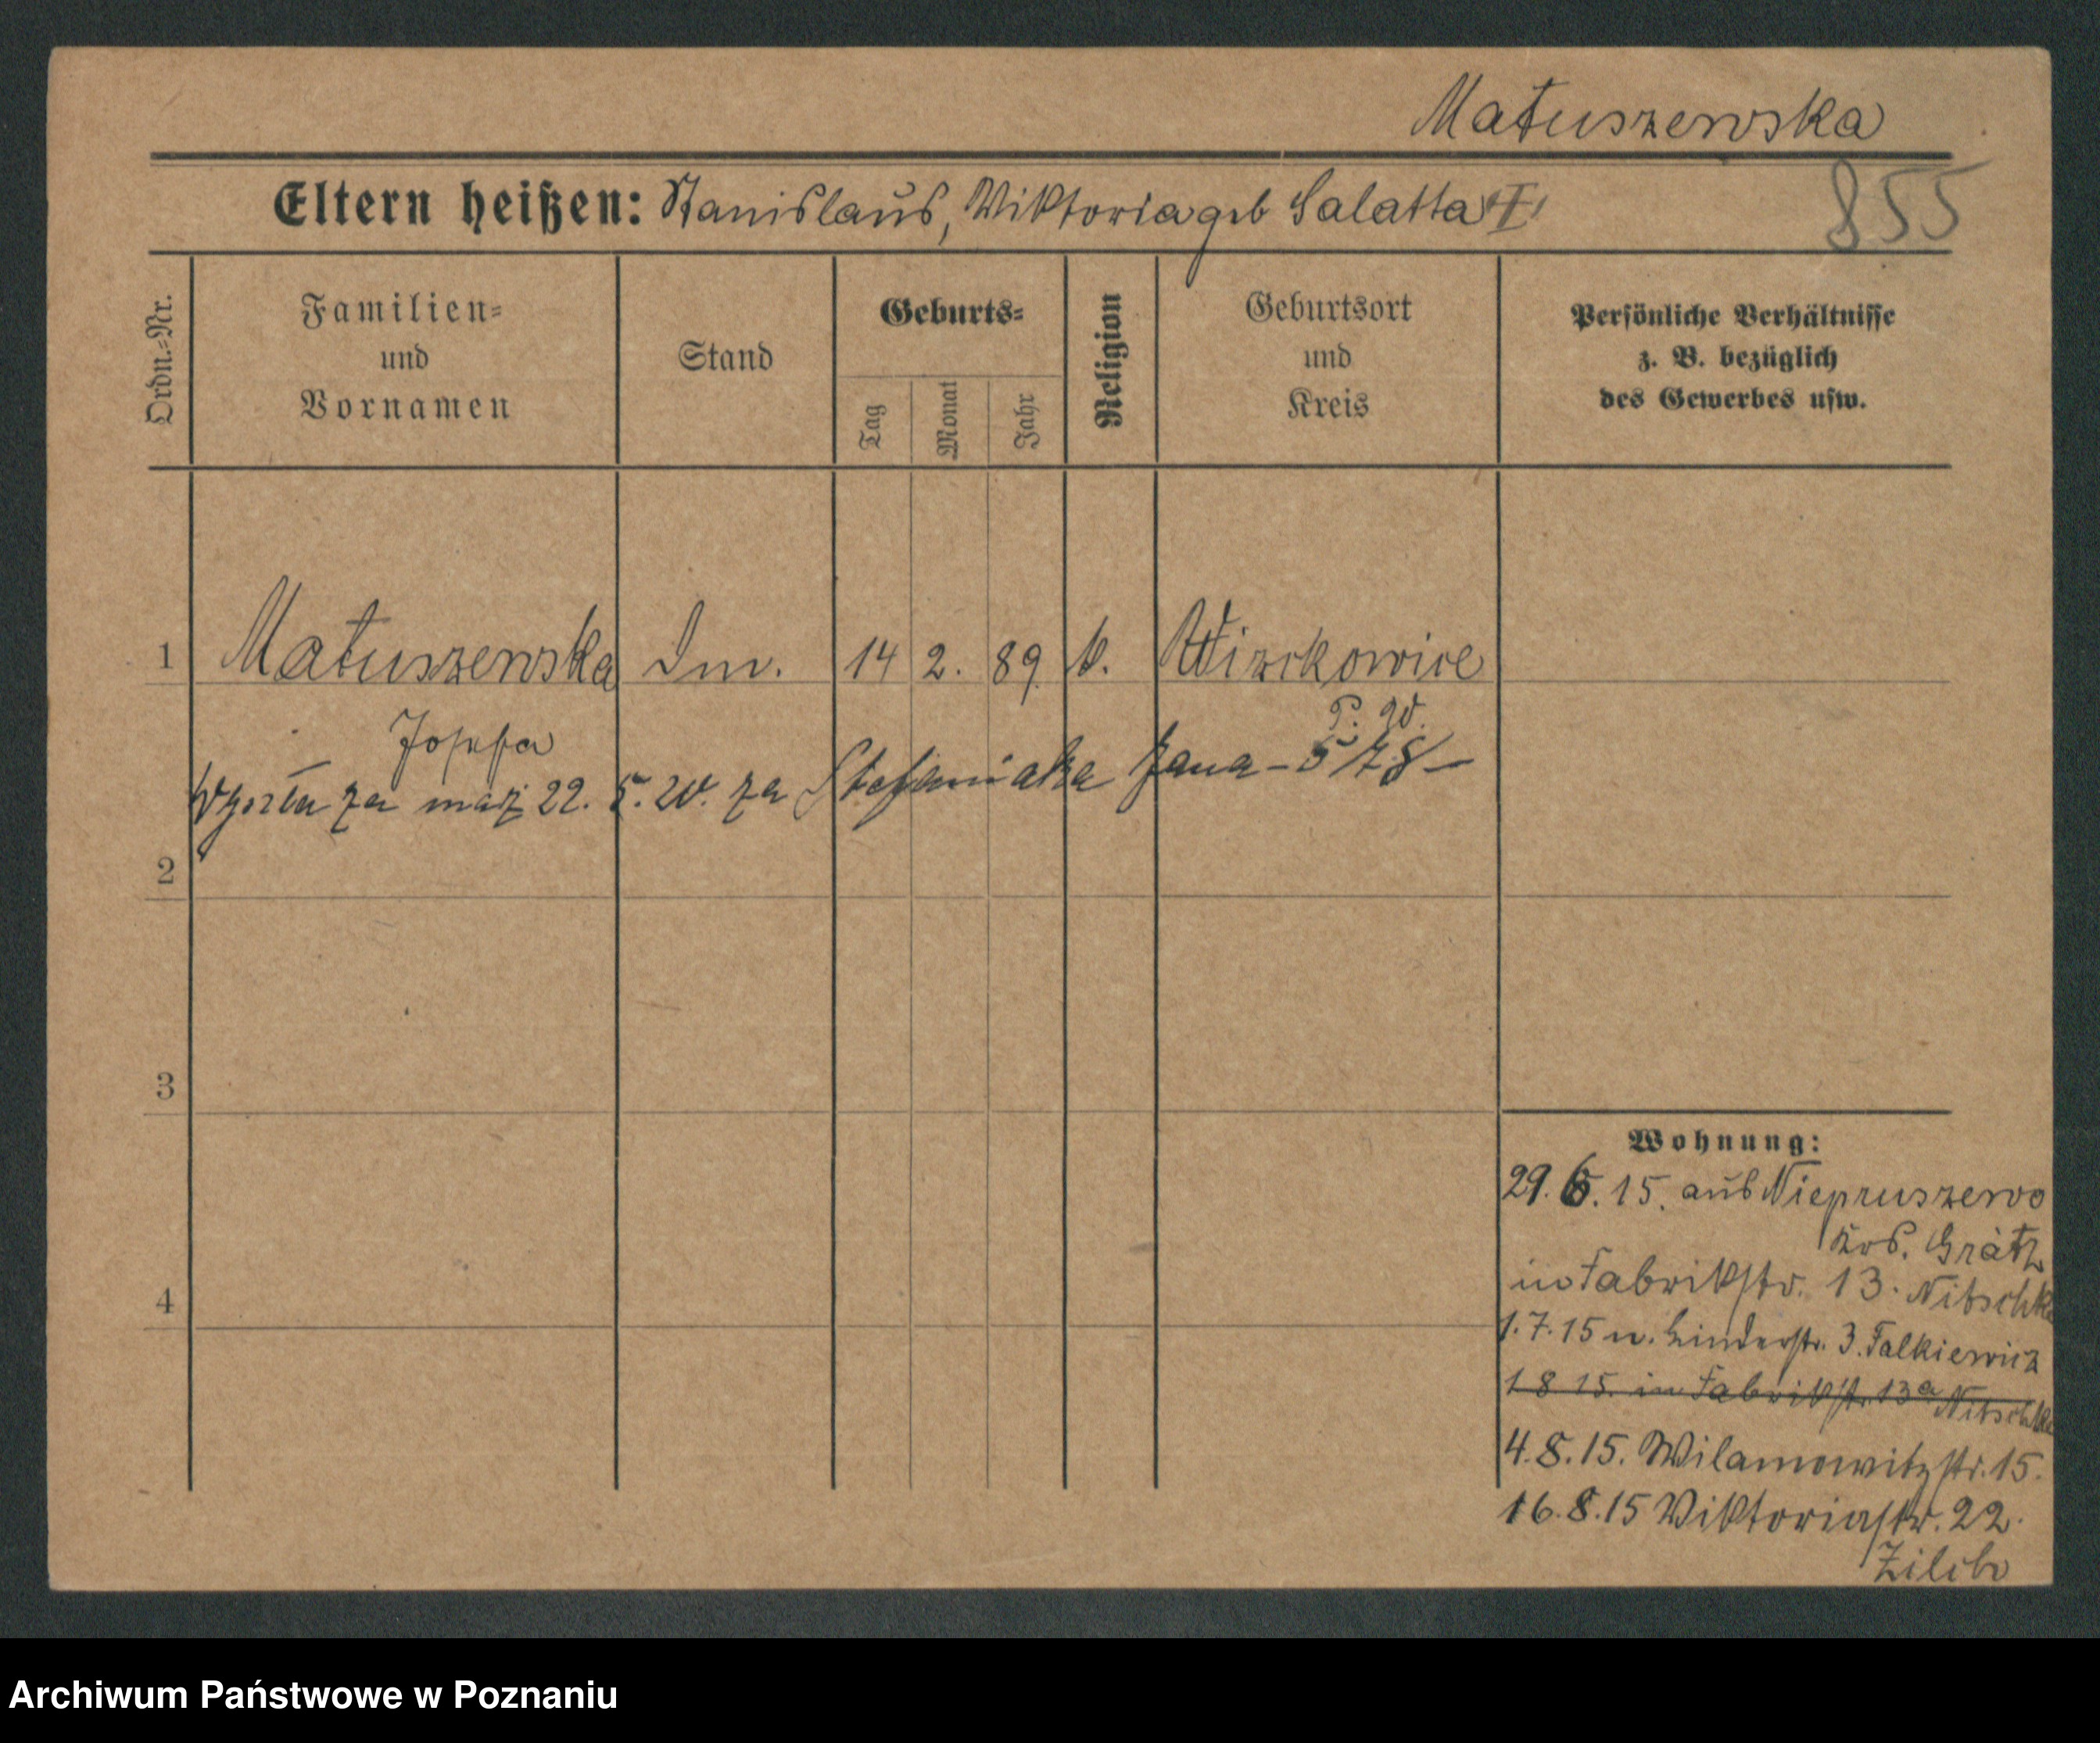 Matuszewska
Eltern heißen: Stanislaus, Wiktoria geb Salatta
855
Ordn.=Nr.
Familien=
und
Vornamen
Stand
Geburts=
Tag
Monat
Jahr
Religion
Geburtsort
und
Kreis
Persönliche Verhältnisse
z. B. bezüglich
des Gewerbes usw.
1 Matuszewska 14 2. 89 k.
Josefa
P. W.
Wyszła za mąż 22. 5. 20. za Stefaniaka Jana –
2
3
4
Wohnung:
29. 6. 15. aus Niepruszewo
Krs. Grätz
in Fabrikstr. 13. Nitschke
1.7.15 n. Linderstr. 3. Falkiewicz
1 8 15. in Fabrikstr. 13a Nitschke
4.8.15. Wilamowitzstr. 15.
16.8.15 Viktoriastr. 22.
Archiwum Państwowe w Poznaniu